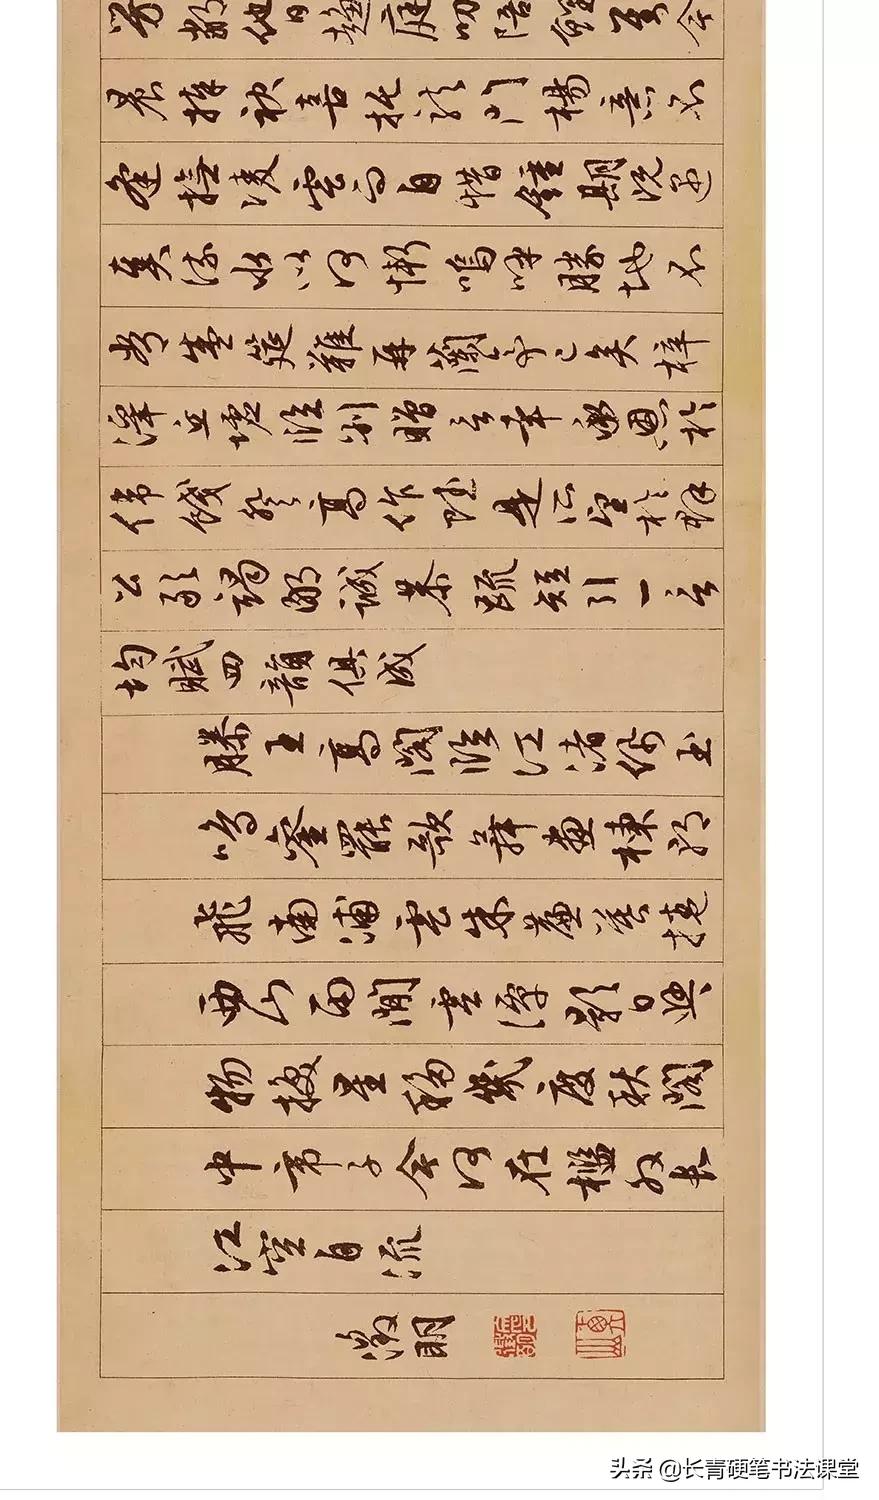 芳鄰他日趨庭叨陪鯉對今
晨捧袂喜托龍門楊意不
逢撫凌雲而自惜鍾期既遇
奏流水以何慚嗚呼勝地不
常盛筵難再蘭亭已矣梓
澤丘墟臨別贈言幸承恩於
偉餞登高作賦是所望於群
公敢竭鄙誠恭疏短引一言
均賦四韻俱成
滕王高閣臨江渚佩玉
鳴鑾罷歌舞畫棟朝
飛南浦雲朱簾暮捲
西山雨閒雲潭影日悠悠
物換星移幾度秋閣
中帝子今何在檻外長
江空自流
徵明
头条 @长青硬笔书法课堂